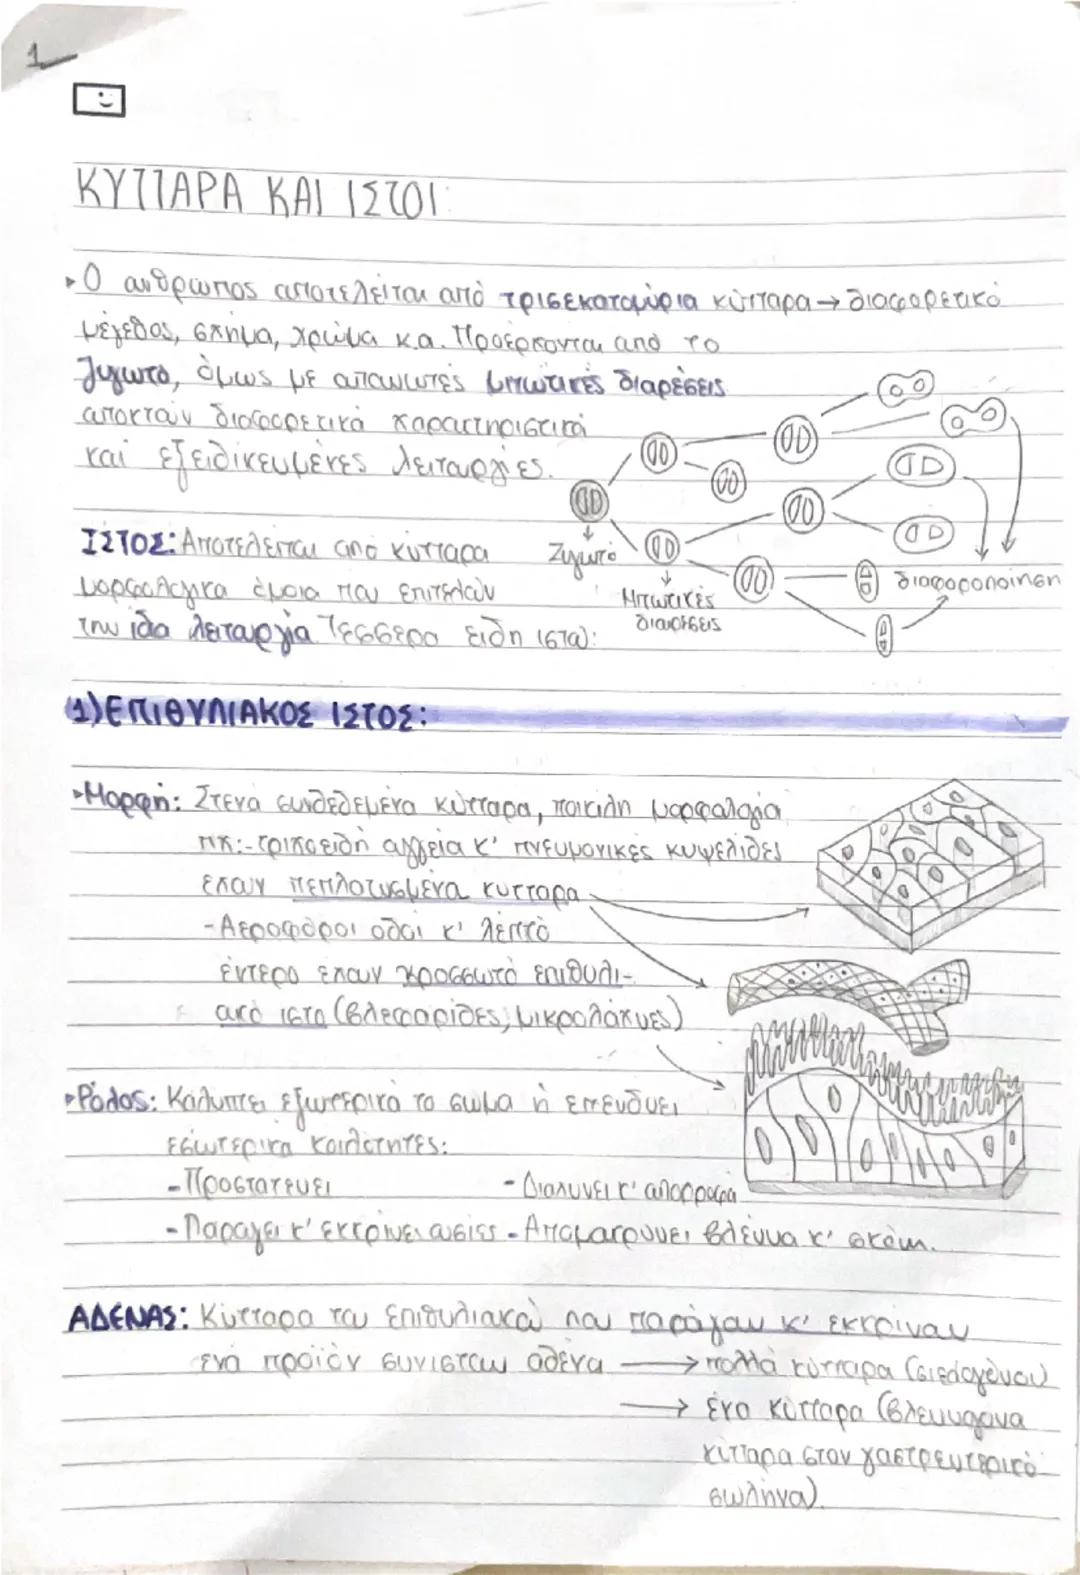 1
ΚΥΤΤΑΡΑ ΚΑΙ ΙΣΤΟΙ:
Ο άνθρωπος αποτελείται από τρισεκατομύρια κύτταρα → διαφορετικό
μέγεθος, σχήμα, χρώμα κ.α. Προέρχονται από το
ζυγωτό, όμως με απανωτές μιτωτικές διαρέσεις
αποκτούν διαφορετικά χαρακτηριστικά
και εξειδικευμένες λειτουργίες.
ΙΣΤΟΣ: Αποτελείται από κύτταρα
μορφολογικά όμοια που επιτελούν
την ίδια λειτουργία Τέσσερα είδη ιστού:
Ζυγωτό
Μιτωτικές
διαιρέσεις
διαφοροποίηση
1) ΕΠΙΘΥΛΙΑΚΟΣ ΙΣΤΟΣ:
Μορφή: Στενά συνδεδεμένα κύτταρα, ποικίλη μορφολογία
πχ: -τριχοειδή αγγεία κ' πνευμονικές κυψελίδες
έχουν πεπλατυσμένα κύτταρα
- Αεροφόροι οδοί κ' λεπτό
έντερο έχουν κροσσωτό επιθυλι-
ακό ιστό (βλεφαρίδες, μικρολάχνες)
Ρόλος: Καλύπτει εξωτερικά το σώμα ή επενδύει
εσωτερικά κοιλότητες:
- Προστατεύει - Διαλύνει κ' απορροφά
- Παράγει κ' εκκρίνει ουσίες - Απομακρύνει βλέννα κ' σκόνη.
ΑΔΕΝΑΣ: Κύτταρα του επιθυλιακού που παράγουν κ' εκκρίνουν
ένα προϊόν συνιστούν αδένα → πολλά κύτταρα (σιελογόνοι)
→ ένα κύτταρο (βλεννογόνα
κύτταρα στον γαστρεντερικό
σωλήνα).